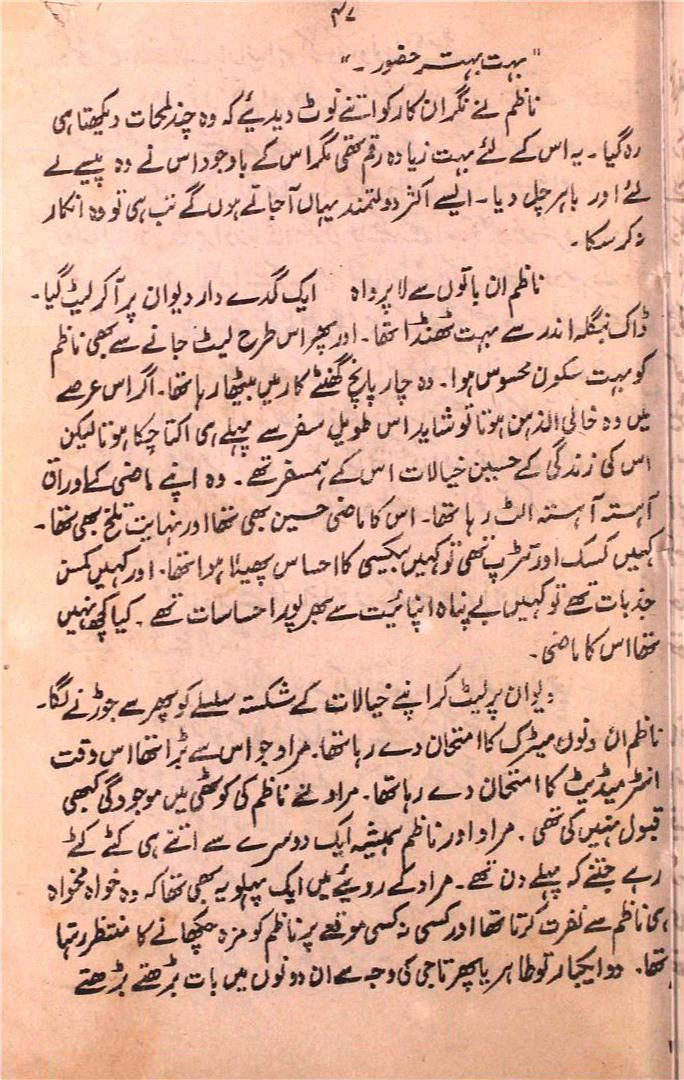 ۴۷
"بہت بہتر حضور۔"
ناظم نے نگران کار کو اتنے نوٹ دیدیئے کہ وہ چند لمحات دیکھتا ہی
رہ گیا۔ یہ اس کے لئے بہت زیادہ رقم تھی مگر اس کے باوجود اس نے وہ پیسے لے
لئے اور باہر چل دیا۔ ایسے اکثر دولتمند یہاں آجاتے ہوں گے تب ہی تو وہ انکار
نہ کر سکا۔
ناظم ان باتوں سے لا پرواہ ایک گدے دار دیوان پر آ کر لیٹ گیا۔
ڈاک بنگلہ اندر سے بہت ٹھنڈا تھا۔ اور پھر اس طرح لیٹ جانے سے بھی ناظم
کو بہت سکون محسوس ہوا۔ وہ چار پانچ گھنٹے کار میں بیٹھا رہا تھا۔ اگر اس عرصے
میں وہ خالی الذہن ہوتا تو شاید اس طویل سفر سے پہلے ہی اکتا چکا ہوتا لیکن
اس کی زندگی کے حسین خیالات اس کے ہمسفر تھے۔ وہ اپنے ماضی کے اوراق
آہستہ آہستہ الٹ رہا تھا۔ اس کا ماضی حسین بھی تھا اور نہایت تلخ بھی تھا۔
کہیں کسک اور تڑپ تھی تو کہیں بیکسی کا احساس پھیلا ہوا تھا۔ اور کہیں کمسن
جذبات تھے تو کہیں بے پناہ اپنائیت سے بھرپور احساسات تھے۔ کیا کچھ نہیں
تھا اس کا ماضی۔
دیوان پر لیٹ کر اپنے خیالات کے شکستہ سلسلے کو پھر سے جوڑنے لگا۔
ناظم ان دنوں میٹرک کا امتحان دے رہا تھا۔ مراد جو اس سے بڑا تھا اس وقت
انٹرمیڈیٹ کا امتحان دے رہا تھا۔ مراد نے ناظم کی کوٹھی میں موجودگی کبھی
قبول نہیں کی تھی۔ مراد اور ناظم ہمیشہ ایک دوسرے سے اتنے ہی کٹے کٹے
رہے جتنے کہ پہلے دن تھے۔ مراد کے رویئے میں ایک پہلو یہ بھی تھا کہ وہ خواہ مخواہ
ہی ناظم سے نفرت کرتا تھا اور کسی نہ کسی موقعے پر ناظم کو مزہ چکھانے کا منتظر رہتا
تھا۔ دو ایکبار تو طاہر یا پھر تاجی کی وجہ سے ان دونوں میں بات بڑھتے بڑھتے